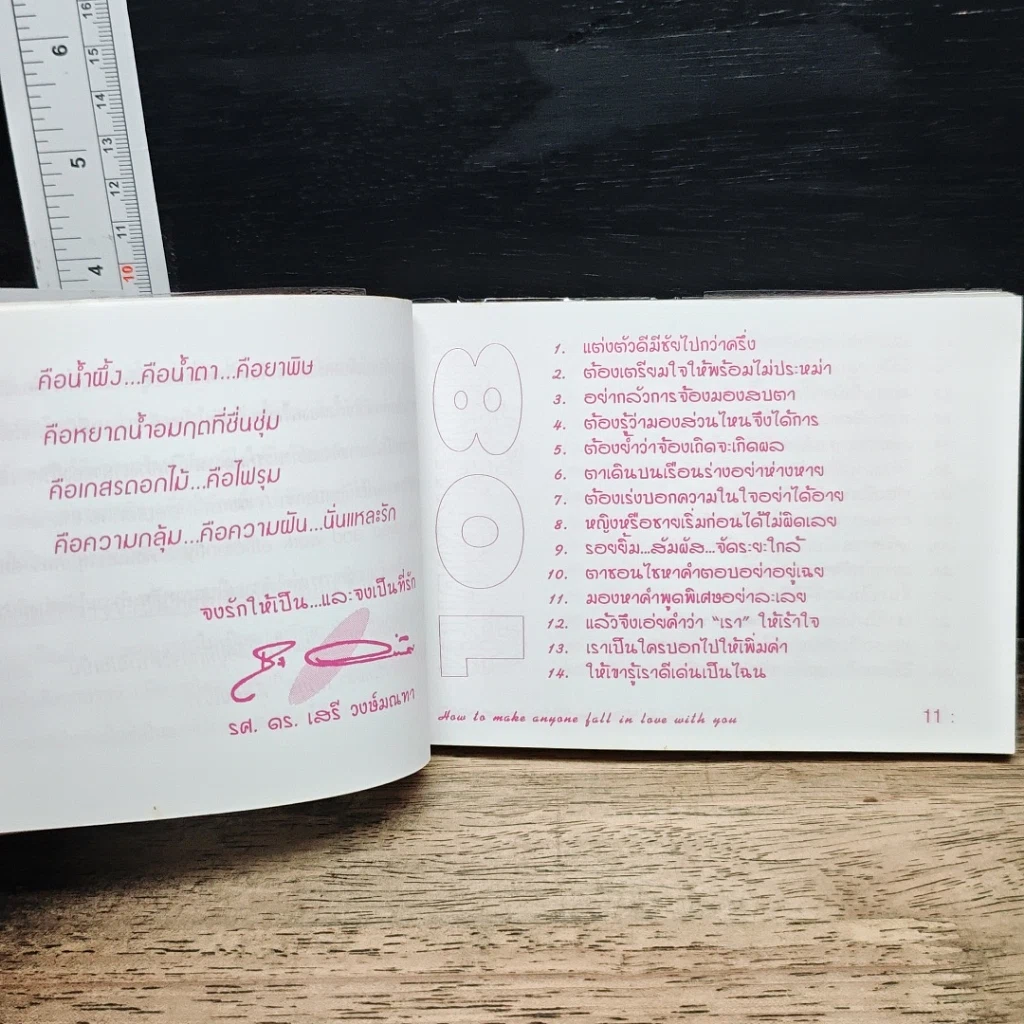 6
5
4
16
15
14
13
12
11
10
คือน้ำผึ้ง...คือน้ำตา...คือยาพิษ
คือหยาดน้ำอมฤตที่ชื่นชุ่ม
คือเกสรดอกไม้...คือไฟรุม
คือความกลุ้ม...คือความฝัน...นั่นแหละรัก
จงรักให้เป็น...และจงเป็นที่รัก
รศ. ดร. เสรี วงษ์มณฑา
108
1. แต่งตัวดีมีชัยไปกว่าครึ่ง
2. ต้องเตรียมใจให้พร้อมไม่ประหม่า
3. อย่ากลัวการจ้องมองสบตา
4. ต้องรู้ว่ามองส่วนไหนจึงได้การ
5. ต้องย้ำว่าจ้องเถิดจะเกิดผล
6. ตาเดินบนเรือนร่างอย่าห่างหาย
7. ต้องเร่งบอกความในใจอย่าได้อาย
8. หญิงหรือชายเริ่มก่อนได้ไม่ผิดเลย
9. รอยยิ้ม...สัมผัส...จัดระยะใกล้
10. ตาชอนไชหาคำตอบอย่าอยู่เฉย
11. มองหาคำพูดพิเศษอย่าละเลย
12. แล้วจึงเอ่ยคำว่า "เรา" ให้เร้าใจ
13. เราเป็นใครบอกไปให้เพิ่มค่า
14. ให้เขารู้เราดีเด่นเป็นไฉน
How to make anyone fall in love with you
11 :